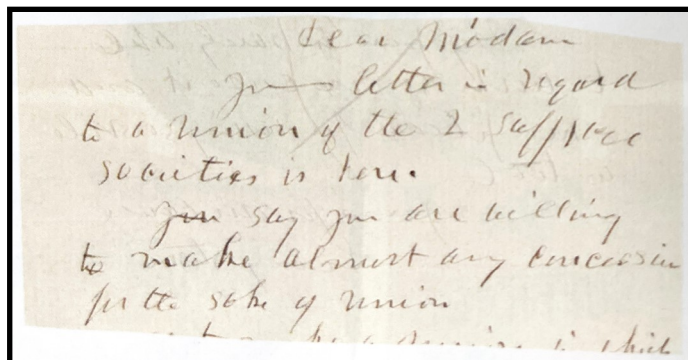 Dear Madam
Your letter in regard
to a union of the 2 suffrage
societies is here.
You say you are willing
to make almost any concession
for the sake of union
a union in which